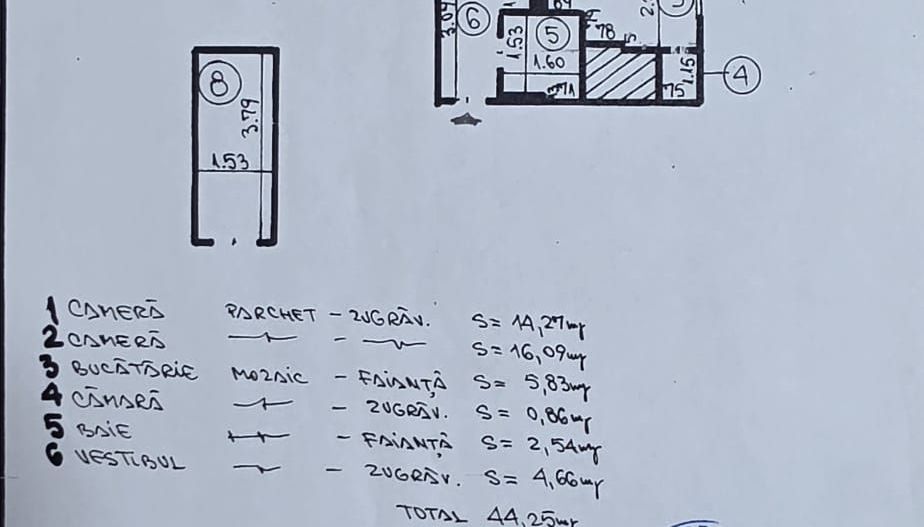 6
5
1.53
1.60
71
78
75
1.15
4
8
3.79
1.53
1 CAMERĂ PARCHET - ZUGRĂV. S= 14,27mp
2 CAMERĂ —〃— - —〃— S= 16,09mp
3 BUCĂTĂRIE MOZAIC - FAIANȚĂ S= 5,83mp
4 CĂMARĂ —〃— - ZUGRĂV. S= 0,86mp
5 BAIE —〃— - FAIANȚĂ S= 2,54mp
6 VESTIBUL —〃— - ZUGRĂV. S= 4,66mp
TOTAL 44,25mp